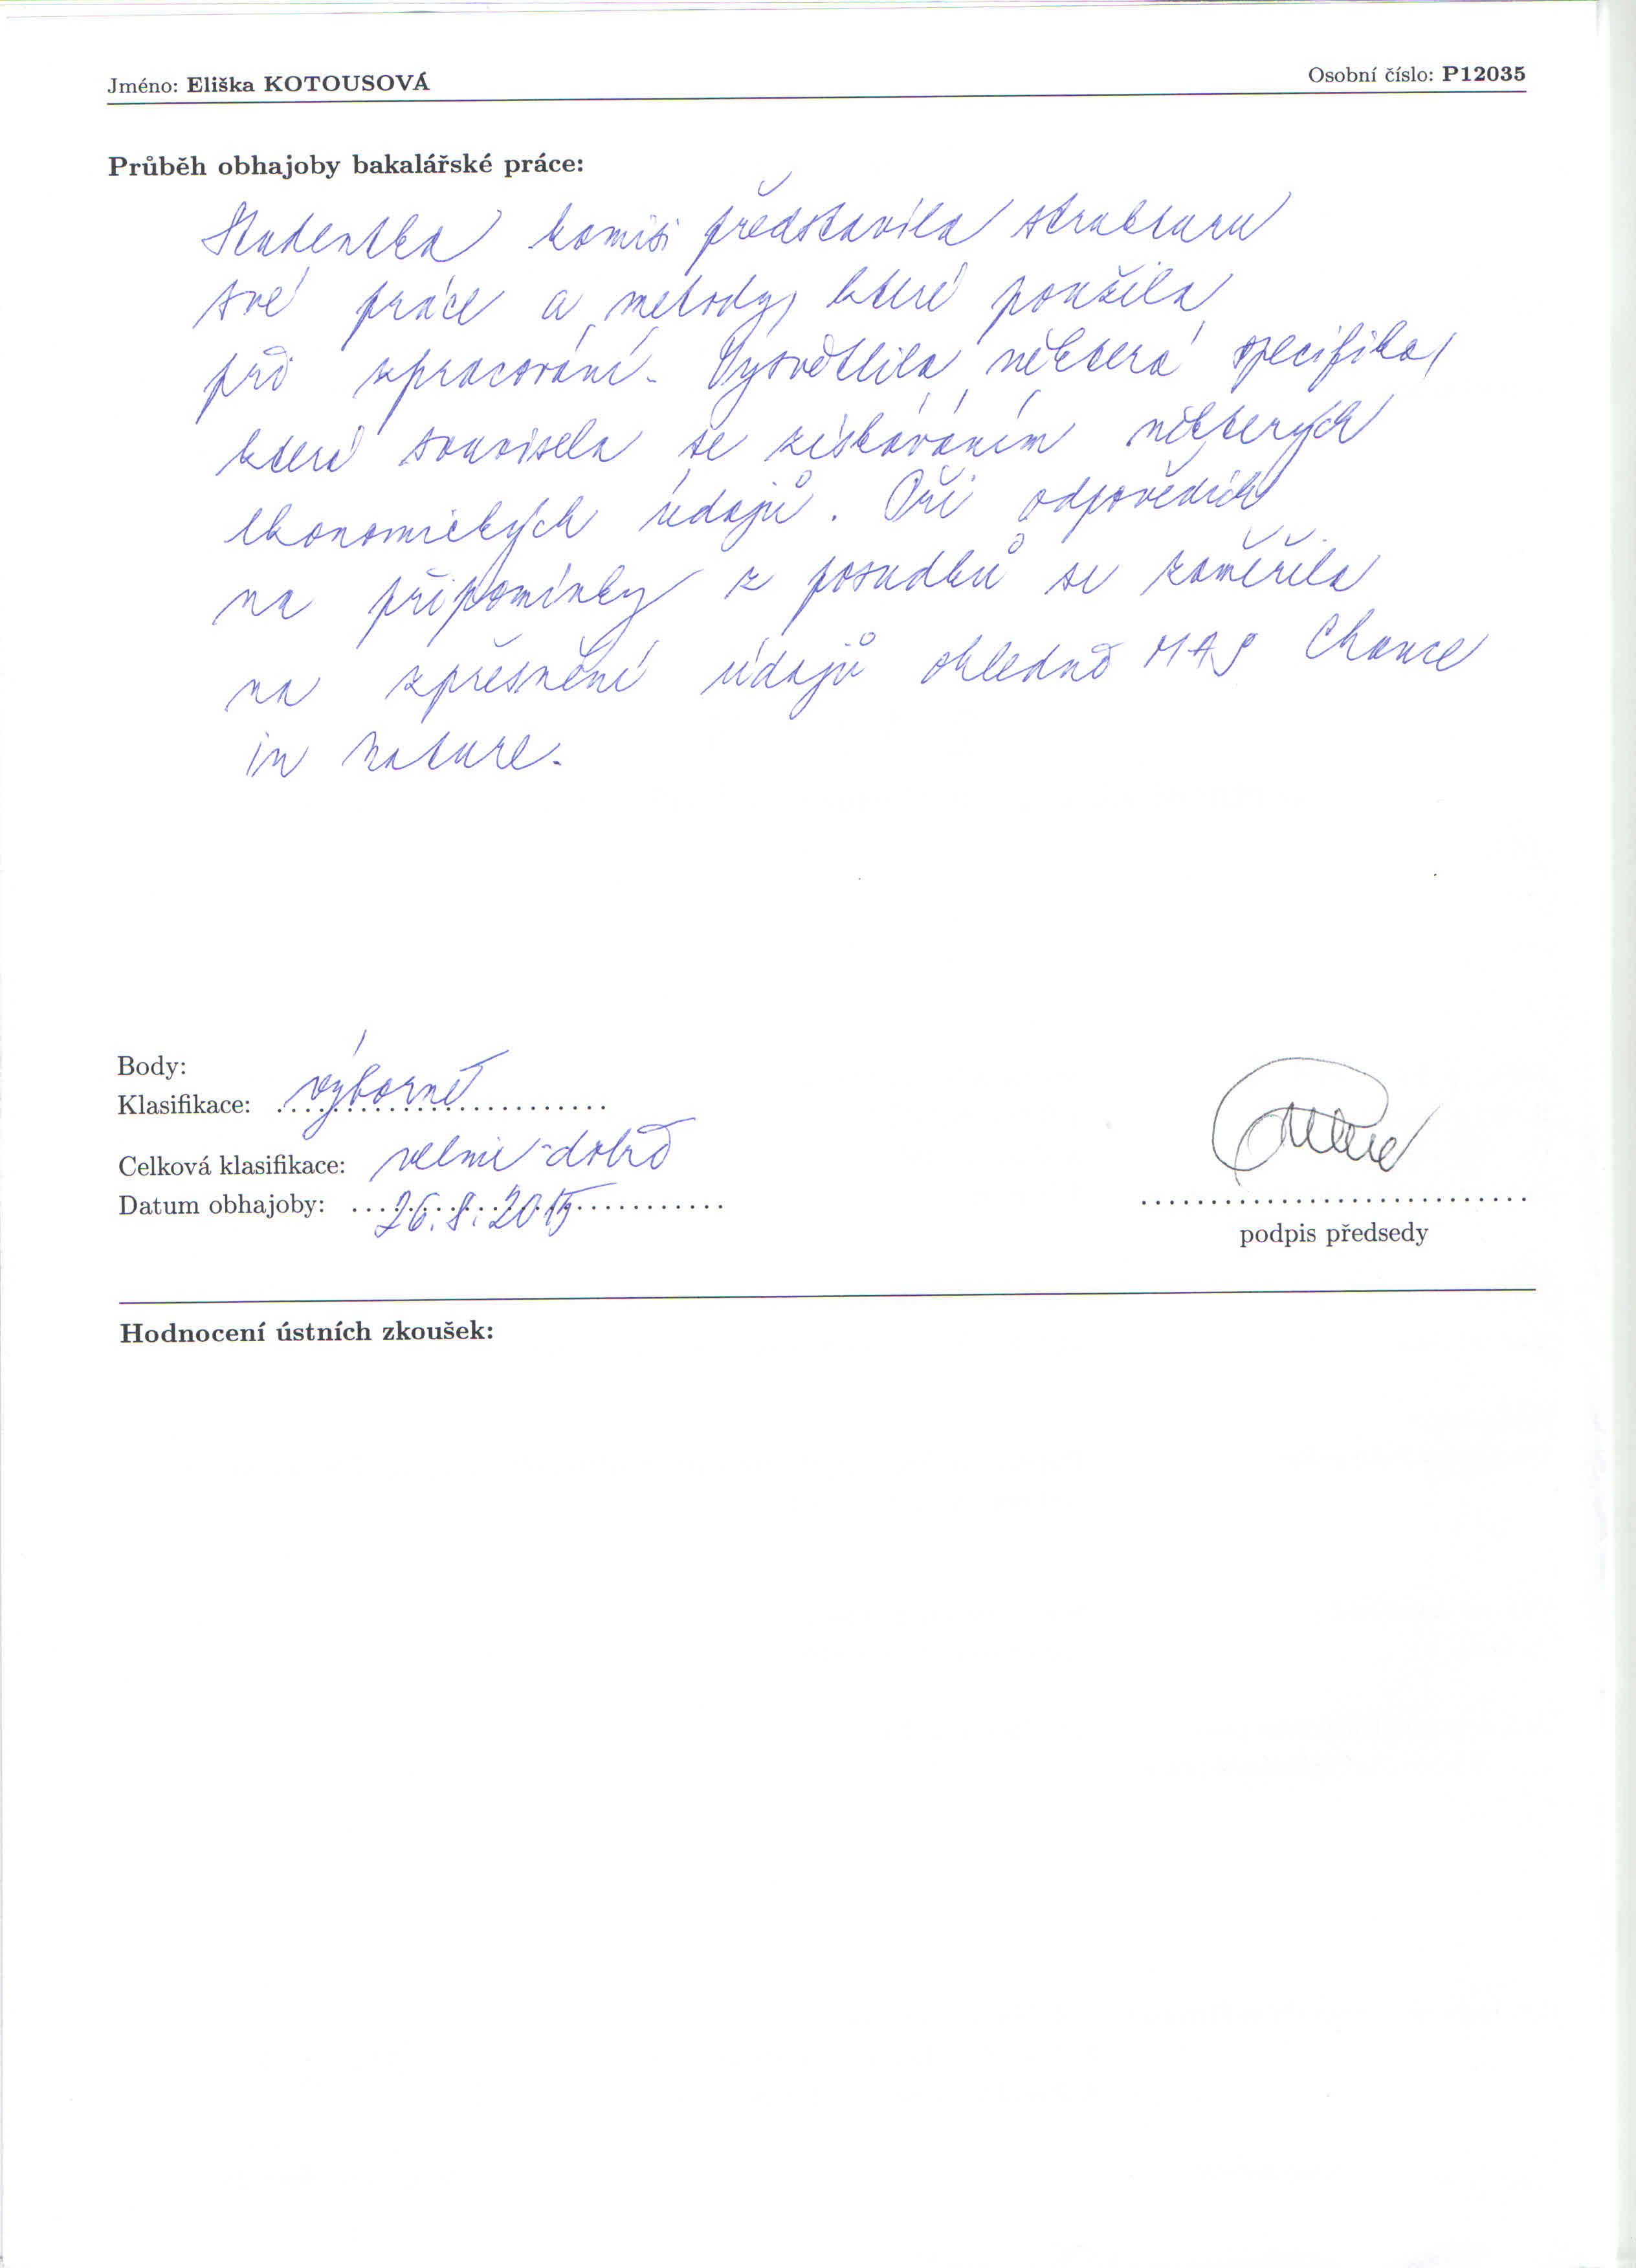 Jméno: Eliška KOTOUSOVÁ Osobní číslo: P12035
Průběh obhajoby bakalářské práce:
Studentka komisi představila strukturu
své práce a metody, které použila
při zpracování. Vysvětlila některá specifika,
která souvisela se získáváním některých
ekonomických údajů. Při odpovědích
na připomínky z posudků se zaměřila
na zpřesnění údajů ohledně MAS Chance
in nature.
Body:
Klasifikace: výborně
Celková klasifikace: velmi dobře
Datum obhajoby: 26.8.2015
podpis předsedy
Hodnocení ústních zkoušek: